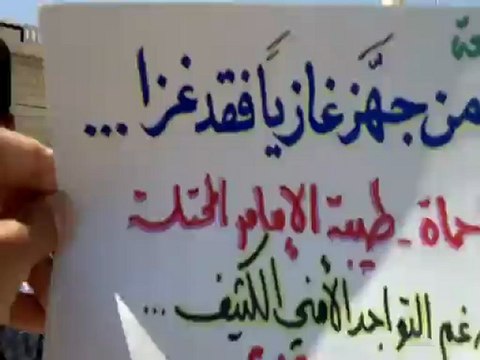 من جهَّز غازياً فقد غزا ...
حماة - طيبة الإمام المحتلة
رغم التواجد الأمني الكثيف ...